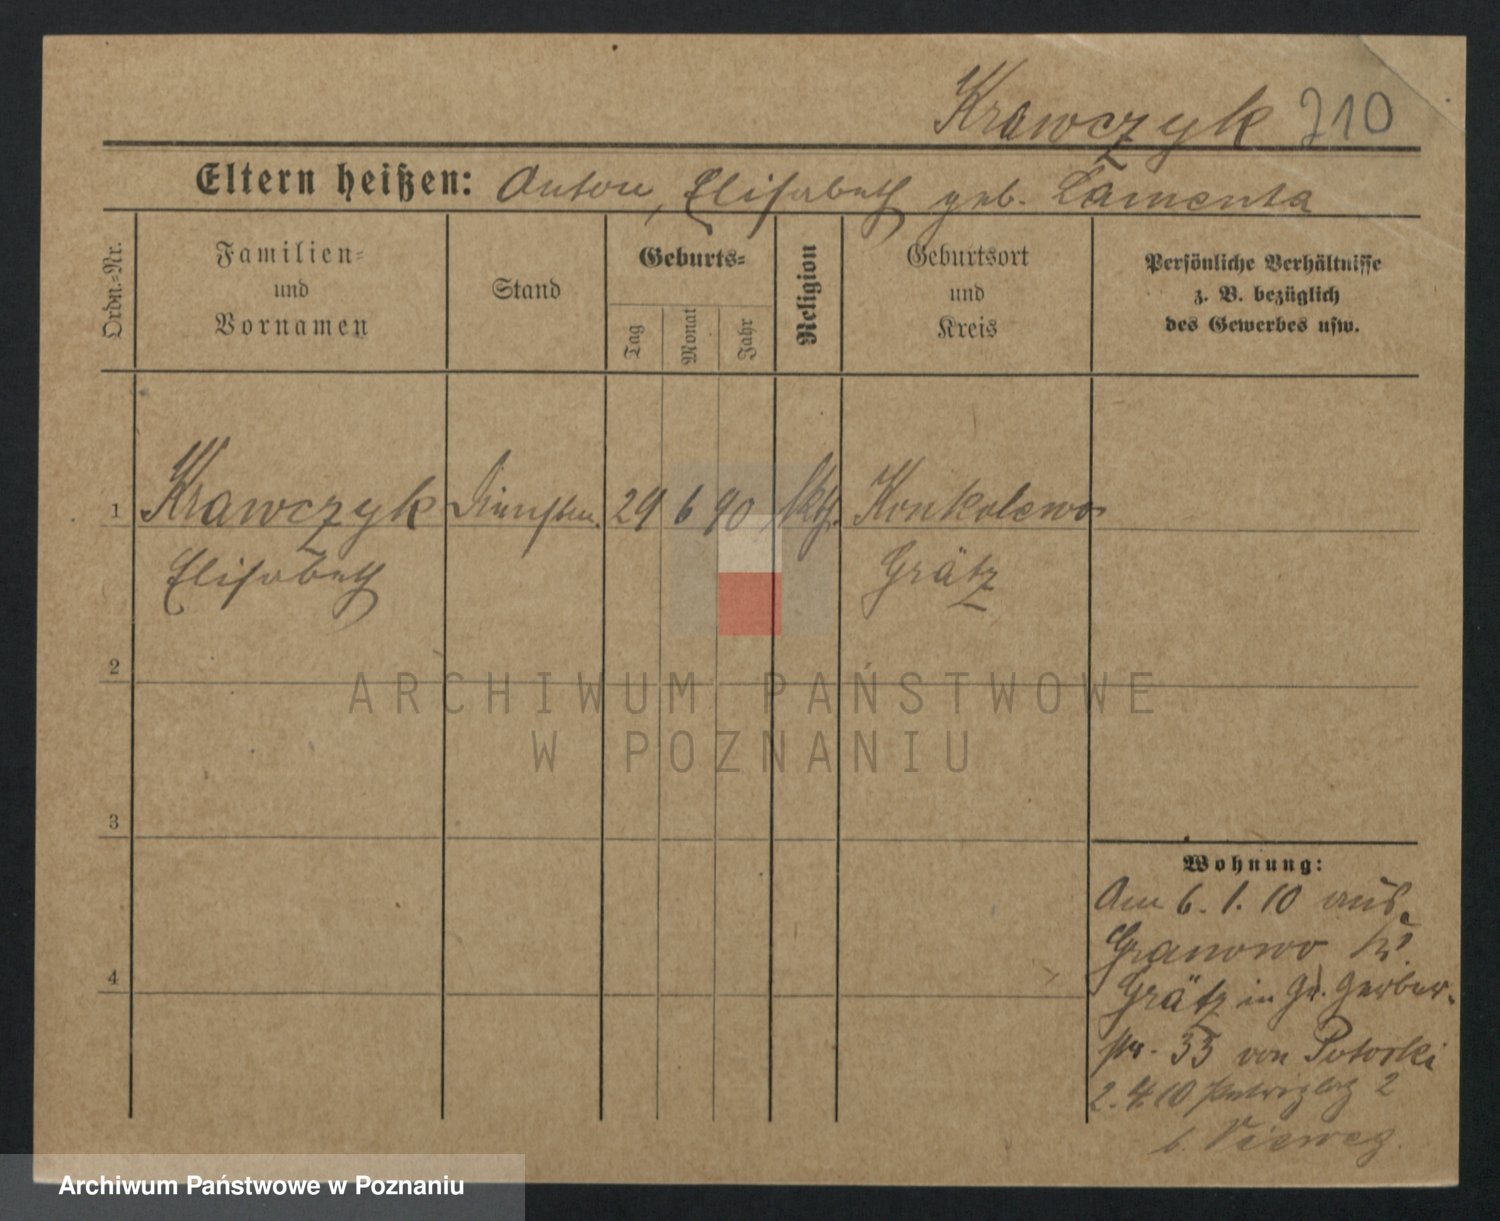 Krawczyk 210
Eltern heißen: Anton, Elisabeth geb. Lamenta
Ordn.-Nr.
Familien-
und
Vornamen
Stand
Geburts-
Tag
Monat
Jahr
Religion
Geburtsort
und
Kreis
Persönliche Verhältnisse
z. B. bezüglich
des Gewerbes usw.
1 Krawczyk 29 6 90 kth. Konkolewo
Elisabeth Grätz
2
3
4
Wohnung:
Am 6. 1. 10 aus
Granowo Kr.
Grätz in Gr. Gerber-
str. 33 von
2. 4. 10 2
b.
ARCHIWUM PAŃSTWOWE
W POZNANIU
Archiwum Państwowe w Poznaniu